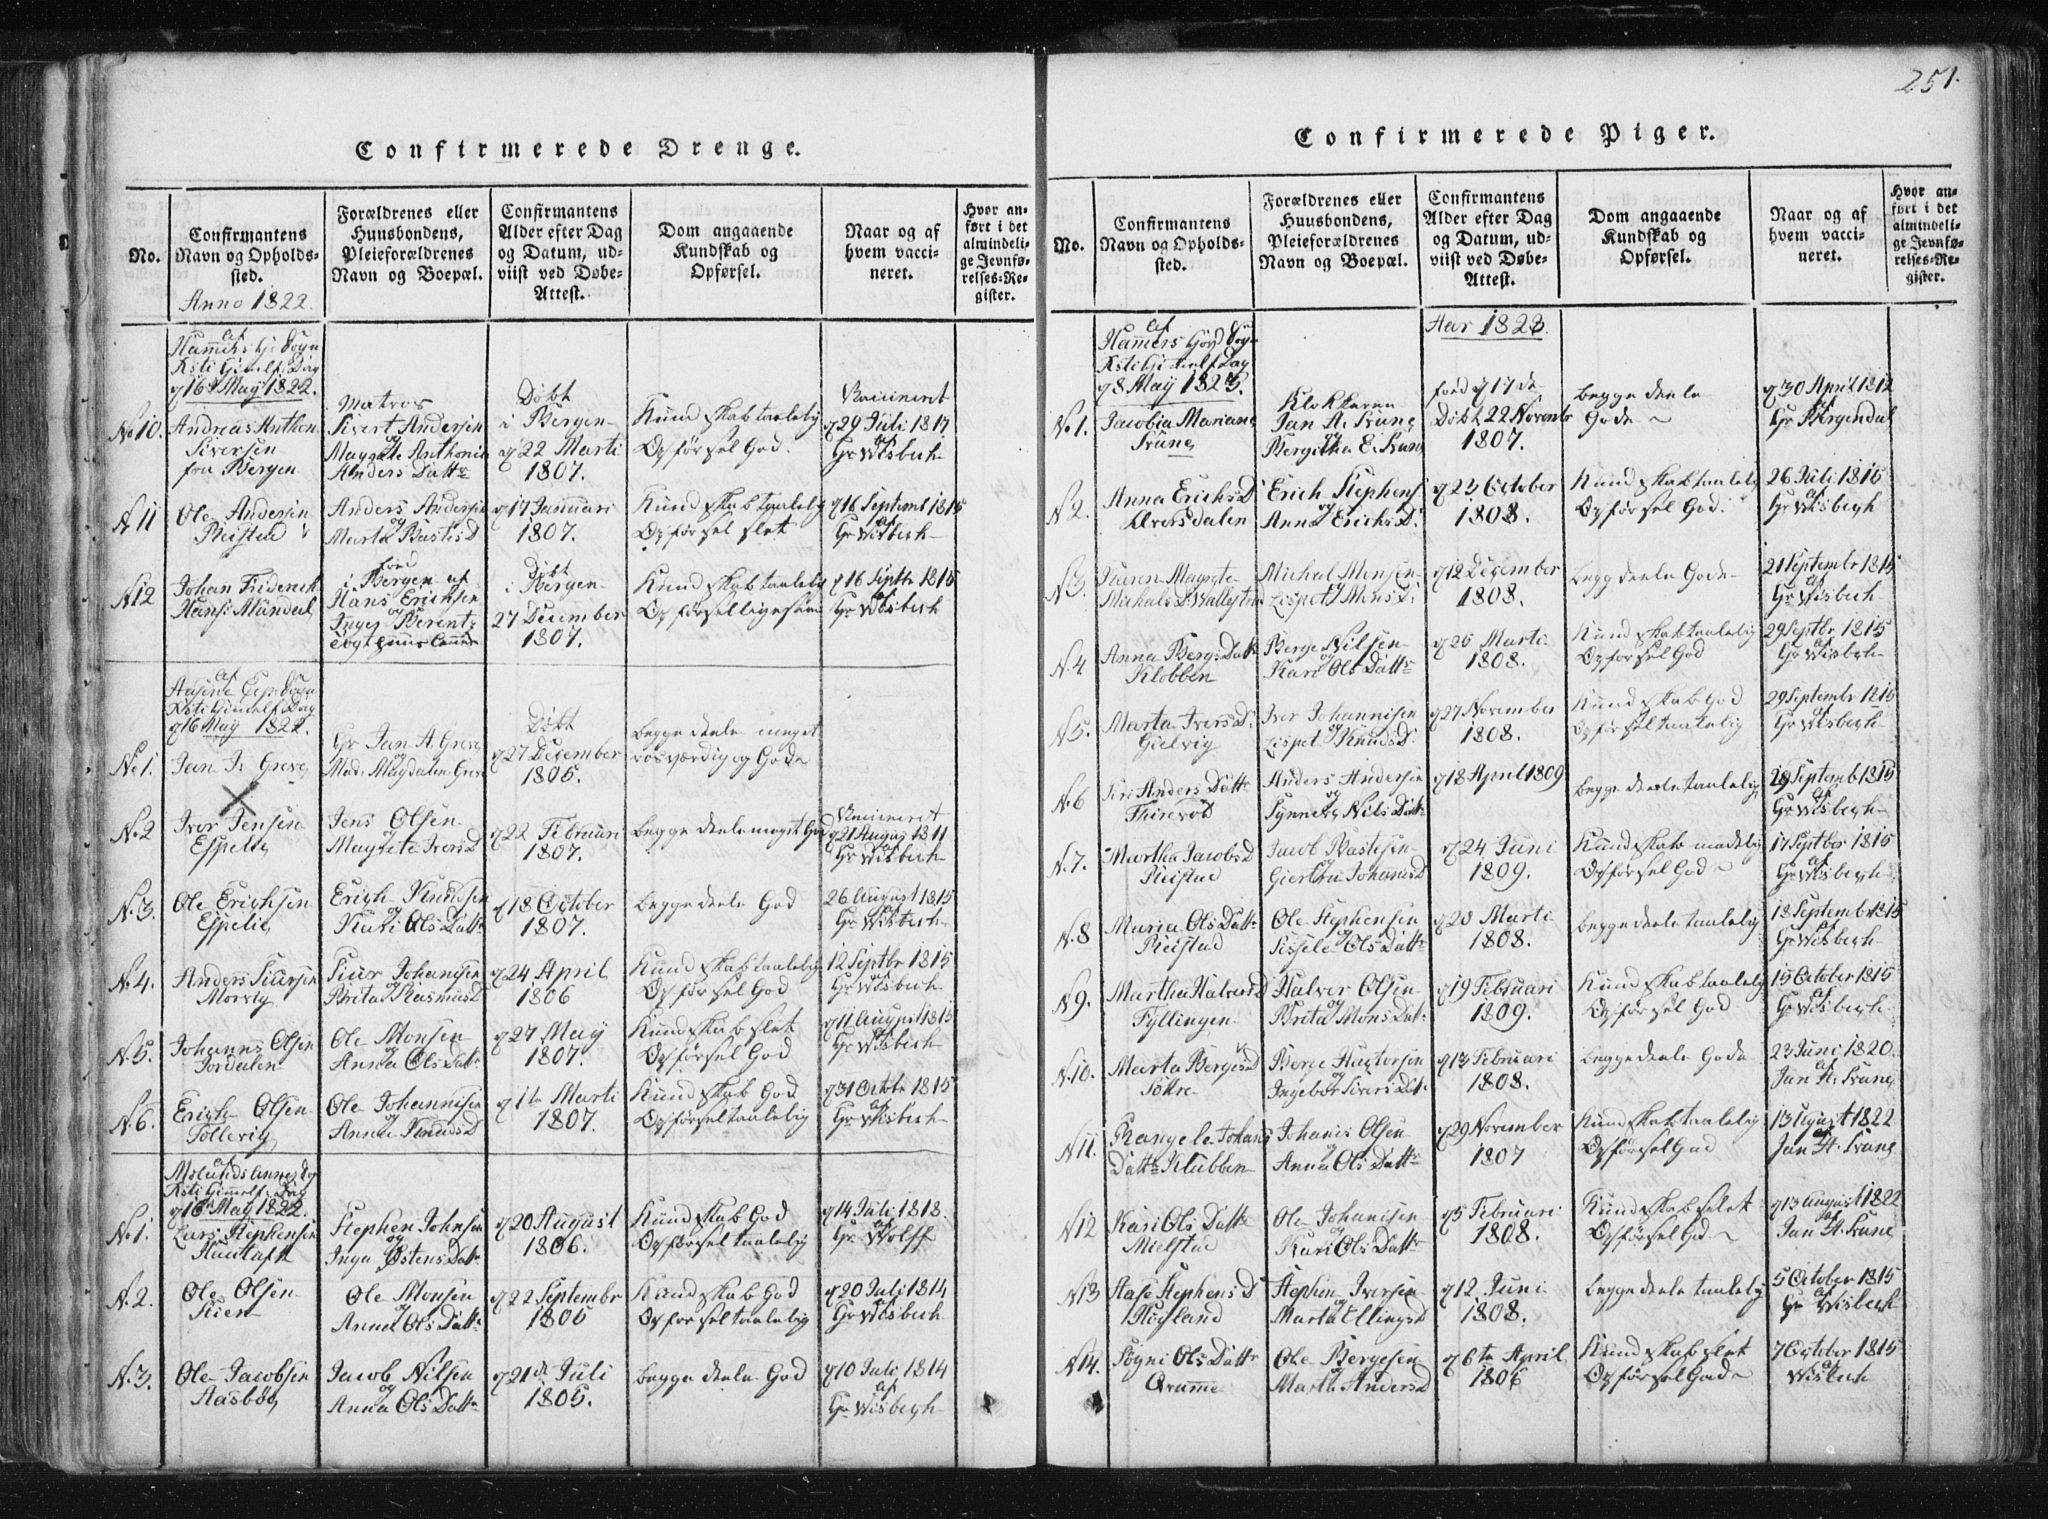 251.
Confirmerede Drenge.
No.
Confirmantens
Navn og Opholds-
sted.
Anno 1822.
Forældrenes eller
Huusbondens,
Pleieforældrenes
Navn og Boepæl.
Confirmantens
Alder efter Dag
og Datum, ud-
viist ved Døbe-
Attest.
Dom angaaende
Kundskab og
Opførsel.
Naar og af
hvem vacci-
neret.
Hvor an-
ført i det
almindeli-
ge Jevnfø-
relses-Re-
gister.
af
16 May 1822.
No 10.
Andreas Anthon
Siversen
fra Bergen
Matros
Sivert Andersen
og
Anders Datter
Døbt
i Bergen
22 Marti
1807.
Kundskab taalelig
Opførsel God.
Vaccineret
29 Juli 1817
af
Hr Wisbech
N 11
Ole Andersen
Anders Andersen
og
17 Januari
1807.
Kundskab taalelig
Opførsel slet
16 Septemb 1815
af
Hr Wisbech
N 12
Johan Friderick
fød
i Bergen af
Hans Erichsen
og
Døbt
i Bergen
27 December
1807.
Kundskab taalelig
Opførsel ligesaa
16 Septbr 1815
af
Hr Wisbech
af
16 May 1822.
No 1.
Jan J. Greve
Hr Jan A. Greve
og
Mad. Magdalen Greve
Døbt
27 December
1805.
begge deele meget
rosværdig og Gode
N. 2
Iver Jensen
Espelie
Jens Olsen
og
Magrete Ivers D
22 Februari
1807.
begge deele meget God
Vaccineret
21 August 1811
af
Hr Wisbech
N. 3.
Ole Erichsen
Espelie
Erich Knudsen
og
Kari Ols Datter
18 October
1807.
begge deele God
26 August 1815
af
Hr Wisbech
N. 4.
Anders Siursen
Morvig
Siur Johannesen
og
Brita Rasmus D
24 April
1806
Kundskab taalelig
Opførsel God
12 Septbr 1815
af
Hr Wisbech
N. 5.
Johannes Olsen
Jordalen
Ole Monsen
og
Anna Ols Datter
27 May
1807.
Kundskab slet
Opførsel God
11 August 1815
af
Hr Wisbech
N. 6.
Erich Olsen
Tollevig
Ole Johannesen
og
Anna Knuds D
1te Marti
1807.
Kundskab God
Opførsel taalelig
31 Octobr 1815
af
Hr Wisbech
af
16 May 1822.
No 1.
Lars Stephensen
Stephen Johnsen
og
Inga Østens Datr
20 August
1806.
Kundskab God
Opførsel taalelig
14 Juli 1818.
af
Hr Wolff
N. 2.
Ole Olsen
Ole Monsen
og
Anna Ols Datter
22 Septembr
1805
Kundskab God
Opførsel taalelig
20 Juli 1814
af
Hr Wisbech
N. 3.
Ole Jacobsen
Aasbøe
Jacob Nilsen
og
Anna Ols Datter
21de Juli
1805.
begge deele God
10 Juli 1814
af
Hr Wisbech
Confirmerede Piger.
No.
Confirmantens
Navn og Opholds-
sted.
Forældrenes eller
Huusbondens,
Pleieforældrenes
Navn og Boepæl.
Confirmantens
Alder efter Dag
og Datum, ud-
viist ved Døbe-
Attest.
Dom angaaende
Kundskab og
Opførsel.
Naar og af
hvem vacci-
neret.
Hvor an-
ført i det
almindeli-
ge Jevnfø-
relses-Re-
gister.
Aar 1823.
af
8 May 1823.
No 1.
Jacobia Mariane
Klokkeren
og
fød 17 de
Døbt 22 Novembr
1807.
begge deele
Gode
30 April 1812
af
Hr Bergendal
N 2.
Anna Erichs D
Erich Stephens
og
Anna Erichs D.
23 October
1808.
Kundskab taalelig
Opførsel God.
26 Juli 1815
af
Hr Wisbech
N 3.
Karen Magrete
Michel Monsen
og
Lispet Mons D.
12 December
1808.
begge deele Gode
21 Septembr 1815
af
Hr Wisbech
N. 4
Anna Bergs Datter
Klobben
Berge Nilsen
og
Kari Ols Datter
25 Marti
1808.
Kundskab taalelig
Opførsel God
29 Septbr 1815
af
Hr Wisbech
N. 5.
Marta Ivers D.
Gielvig
Iver Johannesen
og
Lispet Knuds D.
27 November
1808.
Kundskab God
Opførsel taalelig
29 Septembr 1815
af
Hr Wisbech
N. 6
Siri Anders Datter
Anders Andersen
og
Synneve Nils Datr
18 April 1809
begge deele taalelig
28 Septemb 1815
af
Hr Wisbech
N. 7.
Martha Jacobs D
Jacob Bastesen
og
Giertru Johannes D
24 Juni
1809.
Opførsel God
17 Septbr 1815
af
Hr Wisbech
N. 8
Maria Ols Datter
Ole Stephensen
og
Sissele Ols Datter
20 Marti
1808.
begge deele taalelig
18 Septembr 1815
af
Hr Wisbech
N 9.
Martha Halvers D
Fyllingen
Halver Olsen
og
Brita Mons Dat.
19 Februari
1809.
Kundskab taalelig
Opførsel God
15 October 1815
af
Hr Wisbech
N. 10.
Marta Berges D
og
13 Februari
1808.
begge deele Gode
23 Juni 1820.
af
N 11.
Rangele Johans
Datter Klubben
Johanes Olsen
og
Anna Ols Datter
29 November
1807
Kundskab taalelig
Opførsel God
13 August 1822
af
N 12
Kari Ols Datter
Mielstad
Ole Johannesen
og
Kari Ols Datter
5 Februari
1808.
Kundskab slet
Opførsel God
13 August 1822
af
N 13
Aase Stephens D
Stephen Iversen
og
Marta Ellings D
12 Juni
1808.
begge deele taalelig
5 October 1815
af
Hr Wisbech
N 14.
Søgni Ols Datter
Ole Bergesen
og
Marta Anders D
6te April
1806
Kundskab slet
Opførsel God
7 October 1815
af
Wisbech